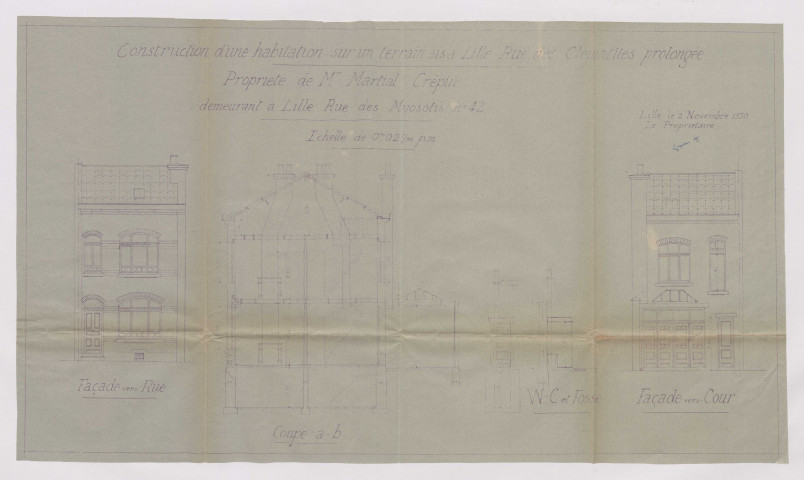 Construction d'une habitation sur un terrain sis à Lille Rue des Clématites prolongée
Propriété de Mr Martial Crépin
demeurant à Lille Rue des Myosotis n° 42
Echelle de 0m02 c/m p.m
Lille le 2 Novembre 1930
Le Propriétaire
Façade vers Rue
Coupe a-b
W-C et Fosse
Façade vers Cour